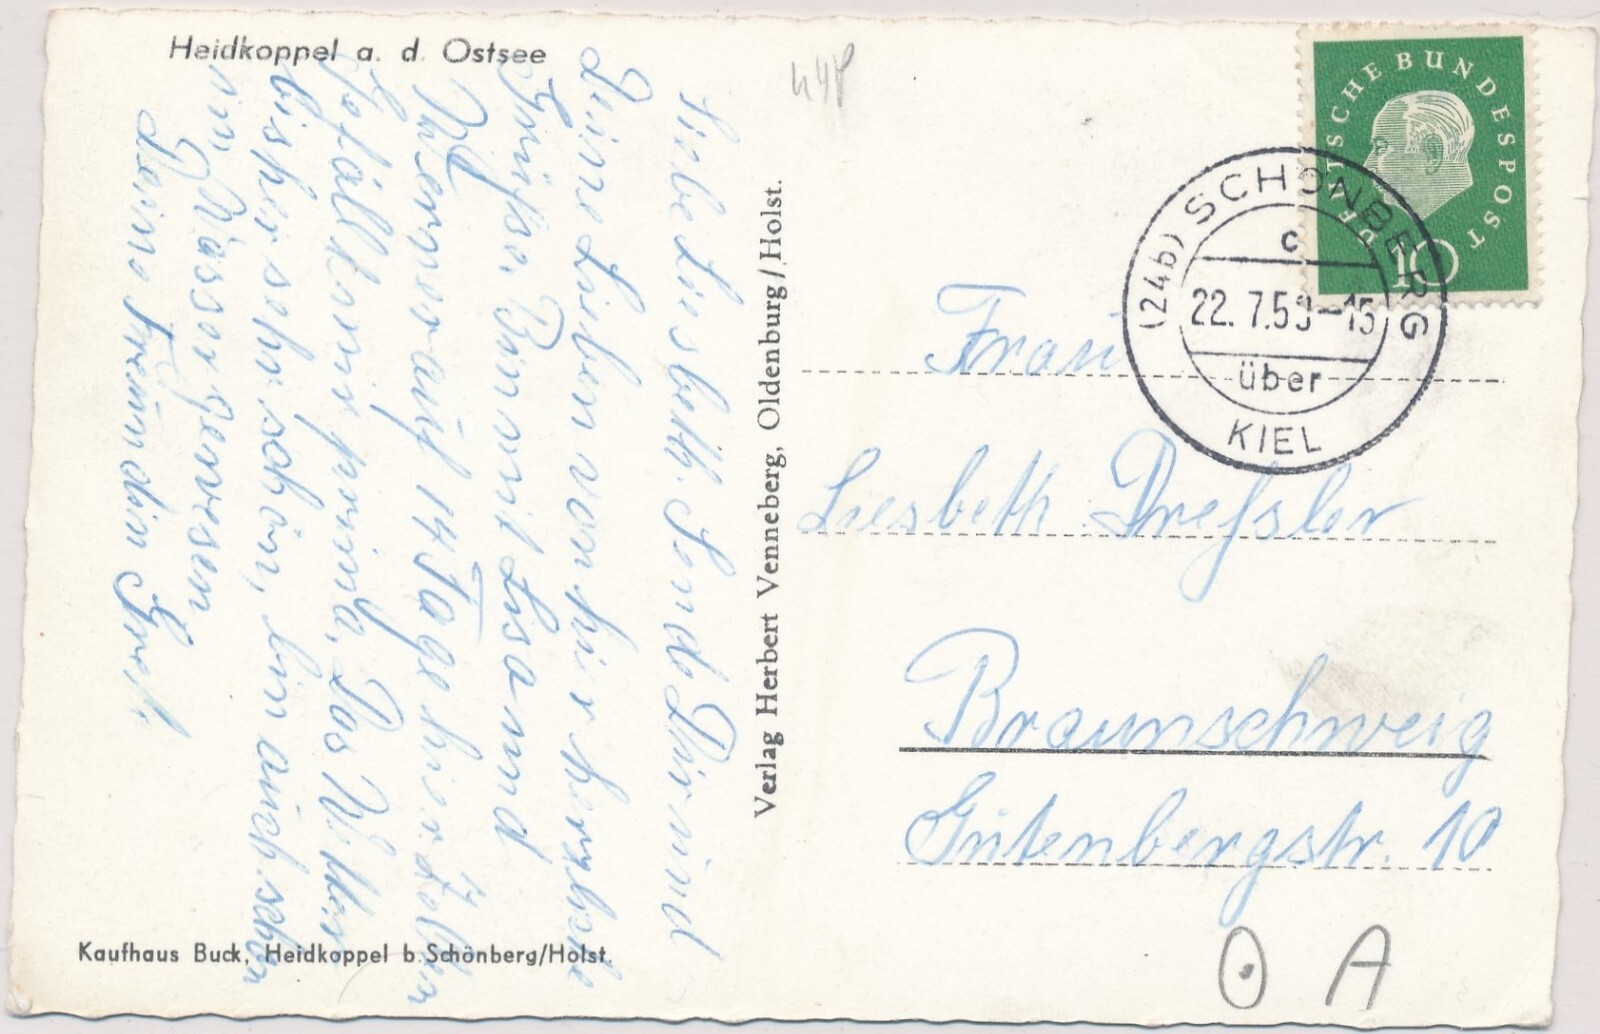 Heidkoppel a. d. Ostsee
Liebe Liesbeth. Sende Dir und
Deine Lieben von hier herzliche
Grüße. Bin mit Lisa und
Werner auf 14 Tage hier Zelten
Gefällt mir prima. Das Wetter
bisher sehr schön, bin auch schon
im Wasser gewesen
Deine Freundin
Kaufhaus Buck, Heidkoppel b. Schönberg/Holst.
Verlag Herbert Venneberg, Oldenburg/Holst.
44P
DEUTSCHE BUNDESPOST
10
(24b) SCHÖNBERG
c
22. 7.59-15
über
KIEL
Frau
Liesbeth Dreßler
Braunschweig
Gutenbergstr. 10
O A